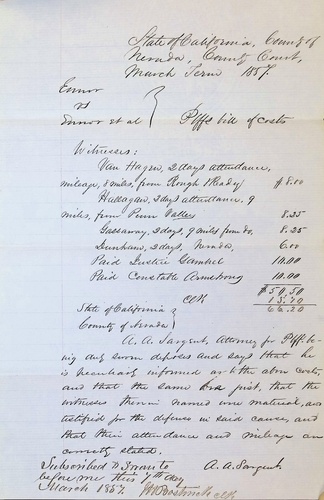 State of California, County of
Nevada, County Court,
March Term 1857.
Ennor
vs
Ennor et al
Plffs bill of costs
Witnesses:
Van Hagen, 2 days attendance,
mileage, 8 miles, from Rough & Ready $8.00
Hullagan, 2 days attendance, 9
miles, from Penn Valley 8.25
Gassaway, 2 days, 9 miles from do. 8.25
Dunham, 2 days, Nevada, 6.00
Paid Justice Gambel 10.00
Paid Constable Armstrong 10.00
$50.50
Clk 15.70
66.20
State of California
County of Nevada
A. A. Sargent, Attorney for Plff. be-
ing duly sworn deposes and says that he
is peculiarly informed as to the above costs,
and that the same are just, that the
witnesses therein named were material, and
testified for the defense in said cause, and
that their attendance and mileage are
correctly stated.
Subscribed & sworn to A. A. Sargent
before me this day
March 1857. Clk